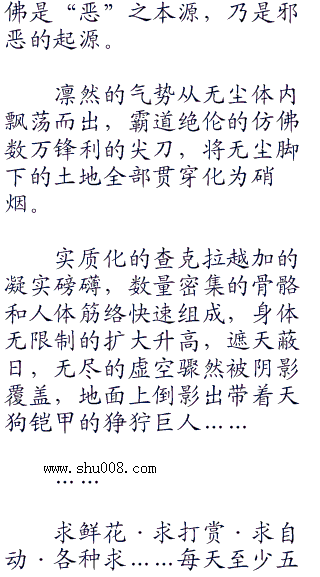 佛是“恶”之本源，乃是邪
恶的起源。
凛然的气势从无尘体内
飘荡而出，霸道绝伦的仿佛
数万锋利的尖刀，将无尘脚
下的土地全部贯穿化为硝
烟。
实质化的查克拉越加的
凝实磅礴，数量密集的骨骼
和人体筋络快速组成，身体
无限制的扩大升高，遮天蔽
日，无尽的虚空骤然被阴影
覆盖，地面上倒影出带着天
狗铠甲的狰狞巨人……
www.shu008.com
……
求鲜花·求打赏·求自
动·各种求……每天至少五